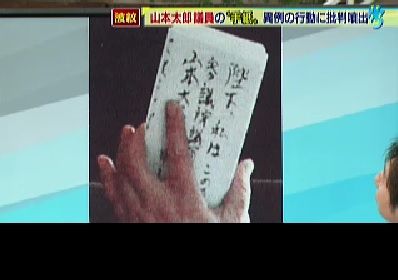 山本太郎議員の
異例の行動に批判噴出
陛下、私はこの
参議院議
山本太